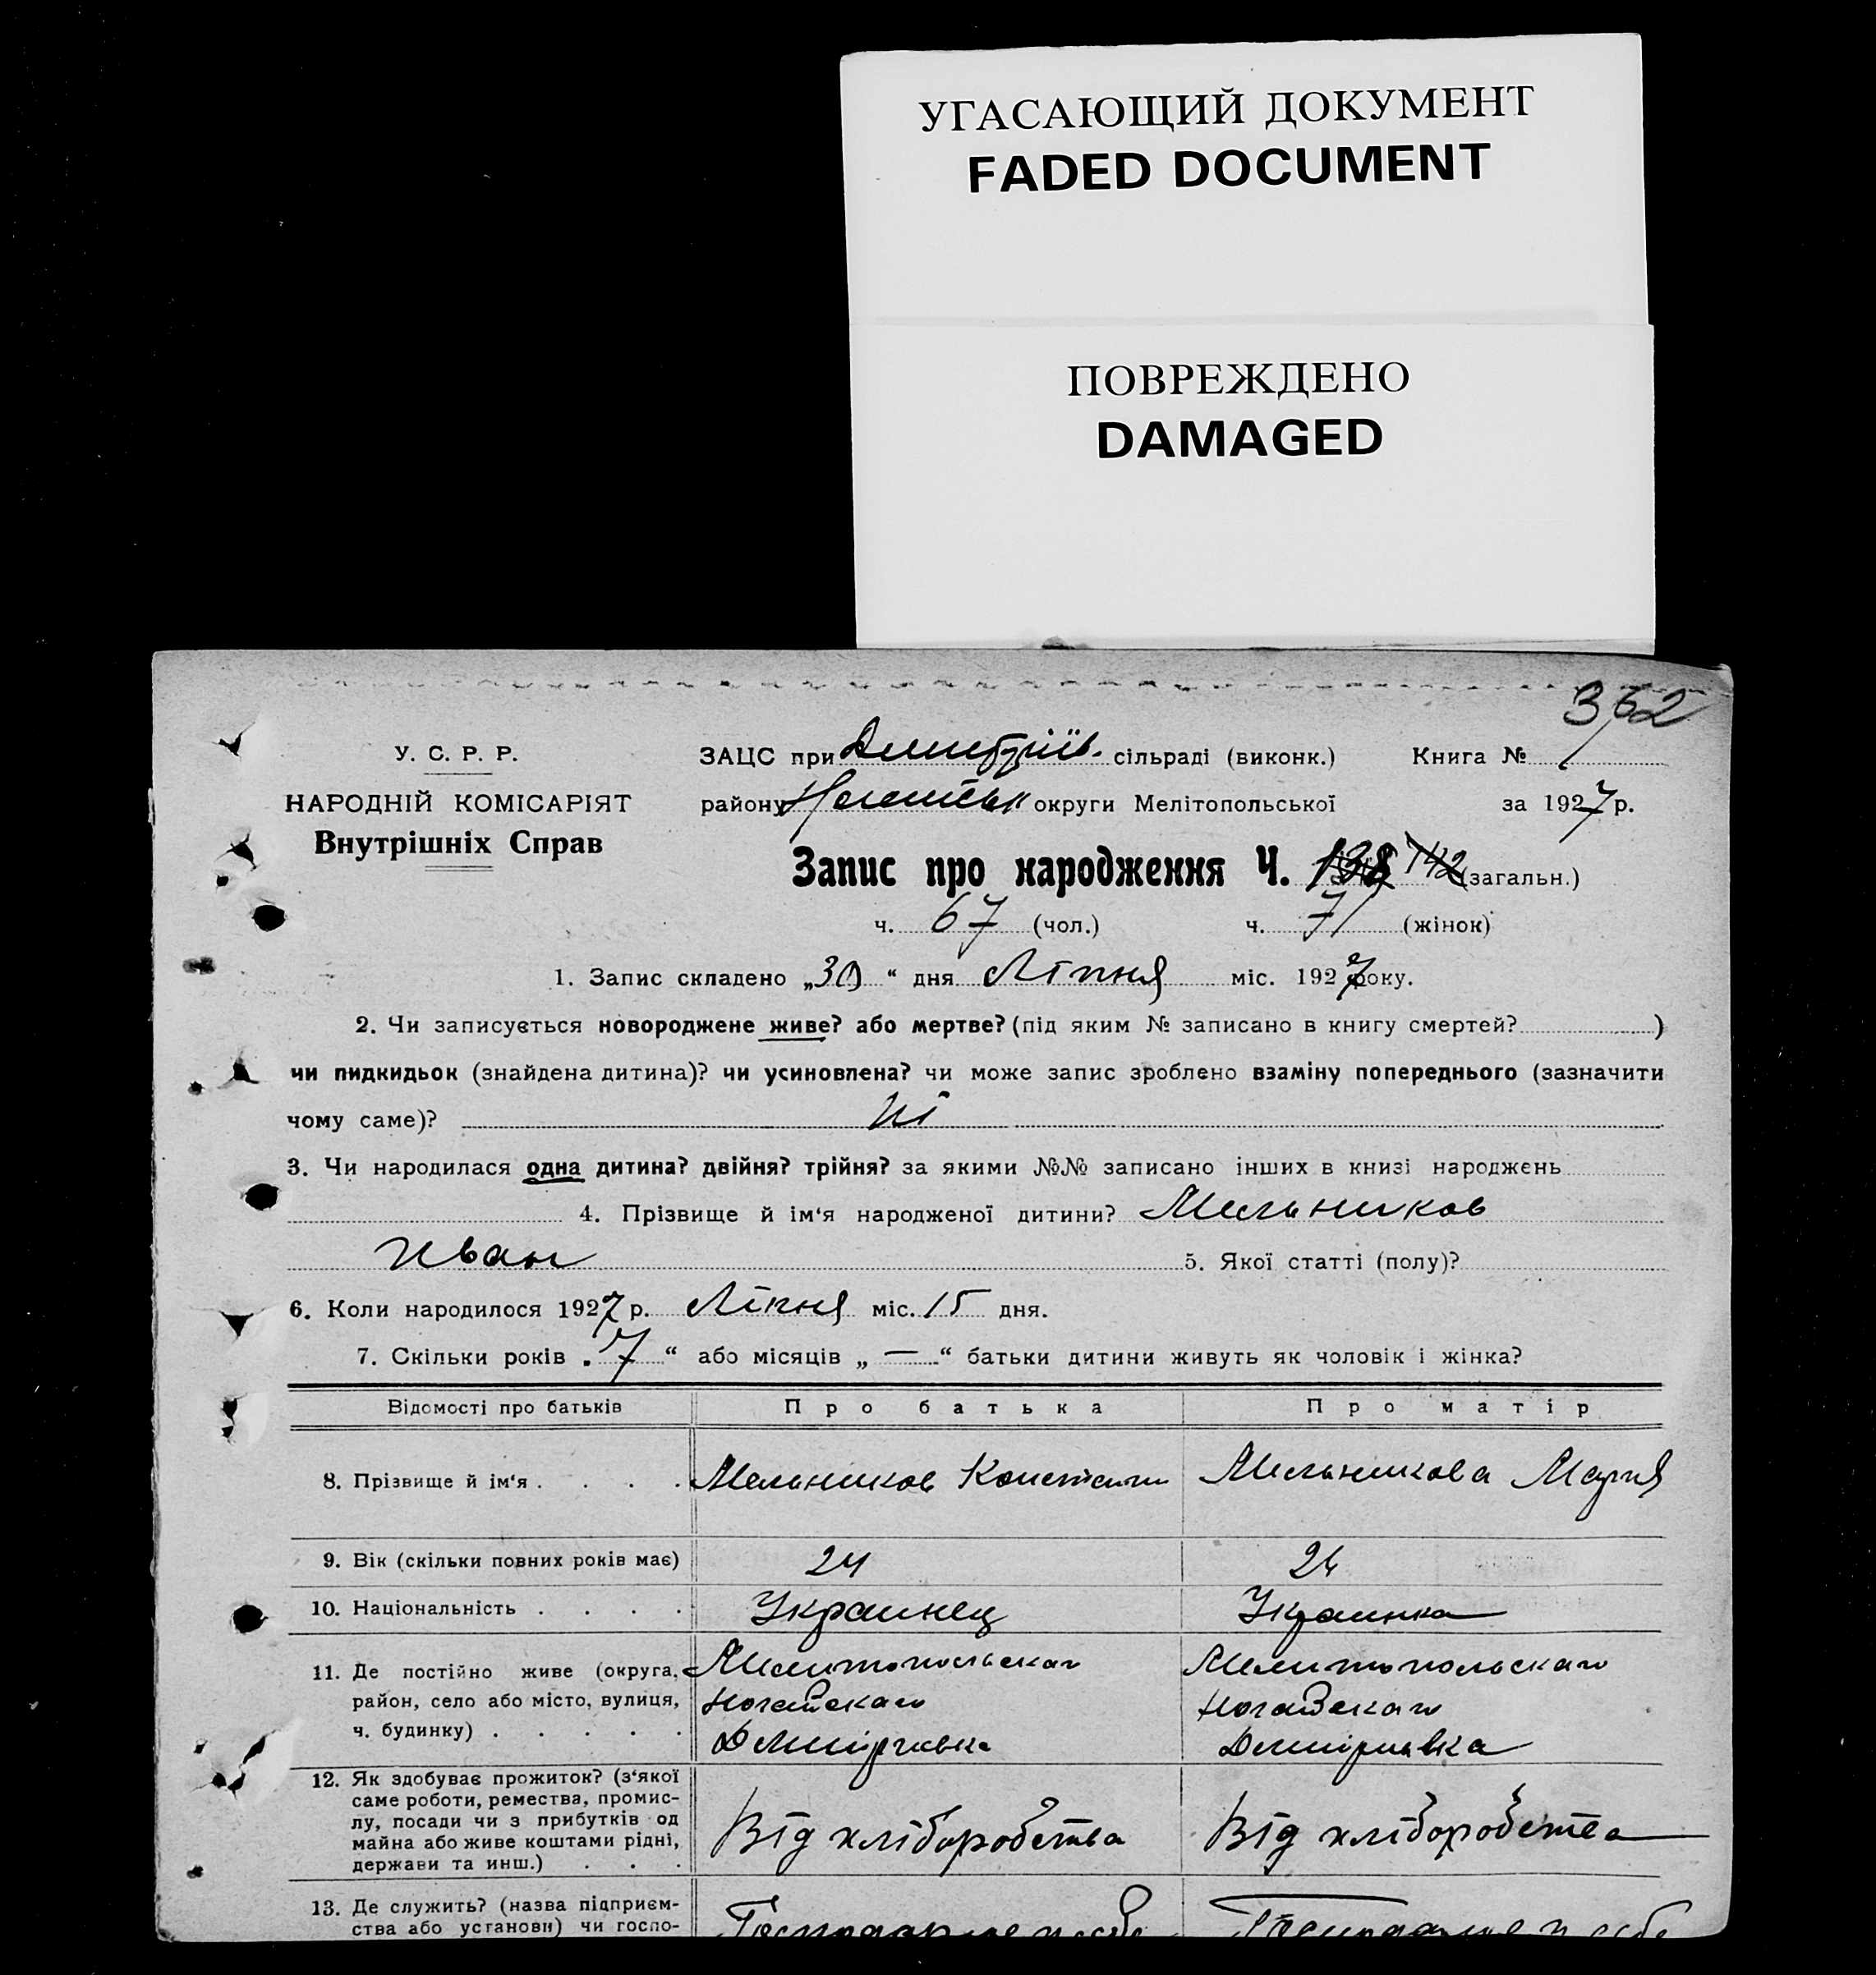 УГАСАЮЩИЙ ДОКУМЕНТ
FADED DOCUMENT
ПОВРЕЖДЕНО
DAMAGED
362
У. С. Р. Р.
НАРОДНІЙ КОМІСАРІЯТ
Внутрішніх Справ
ЗАЦС при Дмитріїв. сільраді (виконк.) Книга №
району округи Мелітопольської за 1927 р.
Запис про народження Ч. 138 142 (загальн.)
ч. 67 (чол.) ч. 71 (жінок)
1. Запис складено „30“ дня Ліпня міс. 1927 року.
2. Чи записується новороджене живе? або мертве? (під яким № записано в книгу смертей? )
чи пидкидьок (знайдена дитина)? чи усиновлена? чи може запис зроблено взаміну попереднього (зазначити
чому саме)? ні
3. Чи народилася одна дитина? двійня? трійня? за якими №№ записано інших в книзі народжень
4. Прізвище й ім‘я народженої дитини? Мельников
Иван 5. Якої статті (полу)?
6. Коли народилося 1927 р. Ліпня міс. 15 дня.
7. Скільки років „7“ або місяців „—“ батьки дитини живуть як чоловік і жінка?
Відомості про батьків Про батька Про матір
8. Прізвище й ім‘я . . . . Мельников Констатин Мельникова Мария
9. Вік (скільки повних років має) 24 26
10. Національність . . . . Украинец Украинка
11. Де постійно живе (округа, Мелитопольскаго Мелитопольскаго
район, село або місто, вулиця, Ногайскаго Ногайскаго
ч. будинку) . . . . .
12. Як здобуває прожиток? (з‘якої
саме роботи, ремества, промис-
лу, посади чи з прибутків од
майна або живе коштами рідні, Від хліборобства Від хліборобства
держави та инш.) . . .
13. Де служить? (назва підприєм-
ства або установи) чи госпо-